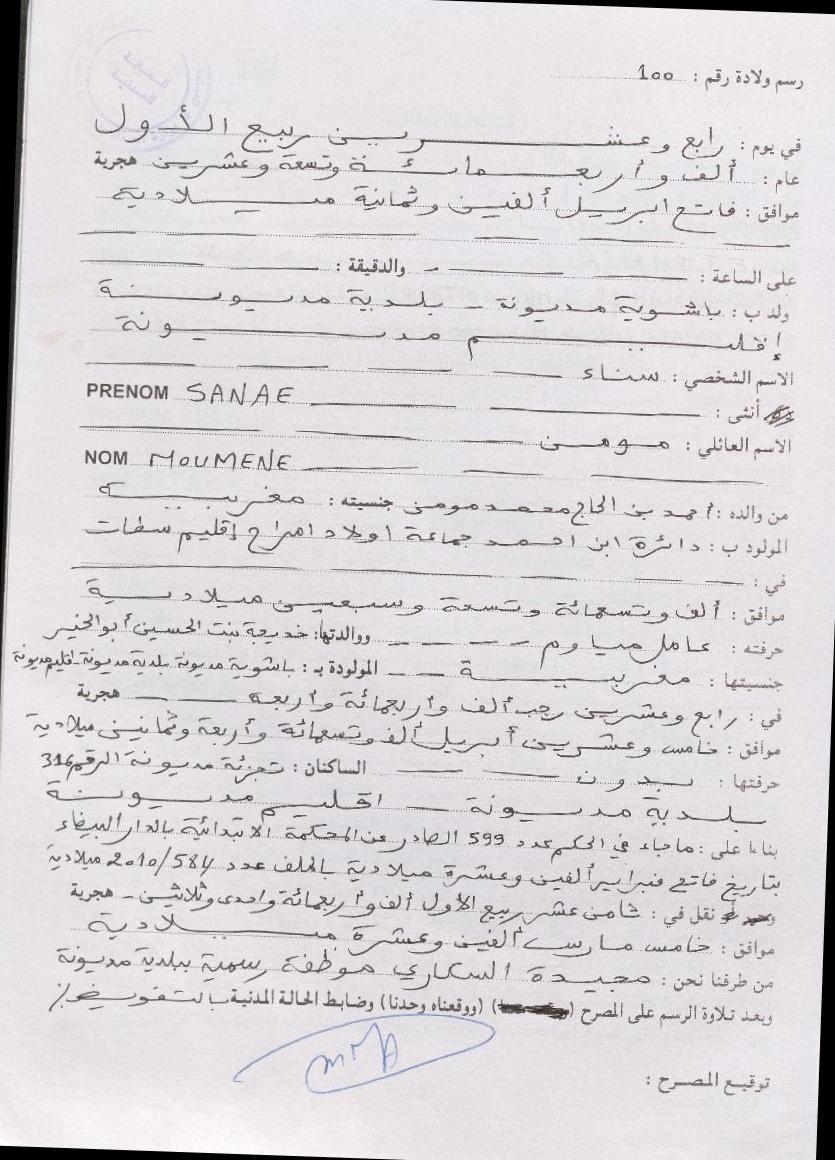 الحالة
المدنية
رسم ولادة رقم : 100
في يوم : رابع وعشرين ربيع الأول
عام : ألف وأربعمائة وتسعة وعشرين هجرية
موافق : فاتح ابريل ألفين وثمانية ميلادية
على الساعة : والدقيقة :
ولد ب : باشوية مديونة - بلدية مديونة
إقليم مديونة
الاسم الشخصي : سناء
أنثى : PRENOM SANAE
الاسم العائلي : مومن
NOM MOUMENE
من والده : أحمد بن الحاج محمد مومن جنسيته : مغربية
المولود ب : دائرة ابن احمد جماعة اولاد امراح إقليم سطات
في :
موافق : ألف وتسعمائة وتسعة وسبعين ميلادية
حرفته : عامل مياوم ووالدتها : خديجة بنت الحسين أبو الخير
جنسيتها : مغربية المولودة بـ : باشوية مديونة بلدية مديونة - إقليم مديونة
في : رابع وعشرين رجب ألف وأربعمائة وأربعة هجرية
موافق : خامس وعشرين أبريل ألف وتسعمائة وأربعة وثمانين ميلادية
حرفتها : بدون الساكنان : تجزئة مديونة الرقم 316
بلدية مديونة - اقليم مديونة
بناءا على : ماجاء في الحكم عدد 599 الصادر عن المحكمة الابتدائية بالدار البيضاء
بتاريخ فاتح فبراير ألفين وعشرة ميلادية بالملف عدد 2010/584 ميلادية
نقل في : ثامن عشر ربيع الأول ألف وأربعمائة واحدى وثلاثين - هجرية
موافق : خامس مارس ألفين وعشرة ميلادية
من طرفنا نحن : مجيدة السكاري موظفة رسمية ببلدية مديونة
وبعد تلاوة الرسم على المصرح () (ووقعناه وحدنا) وضابط الحالة المدنية بالتفويض ./
توقيع المصرح :